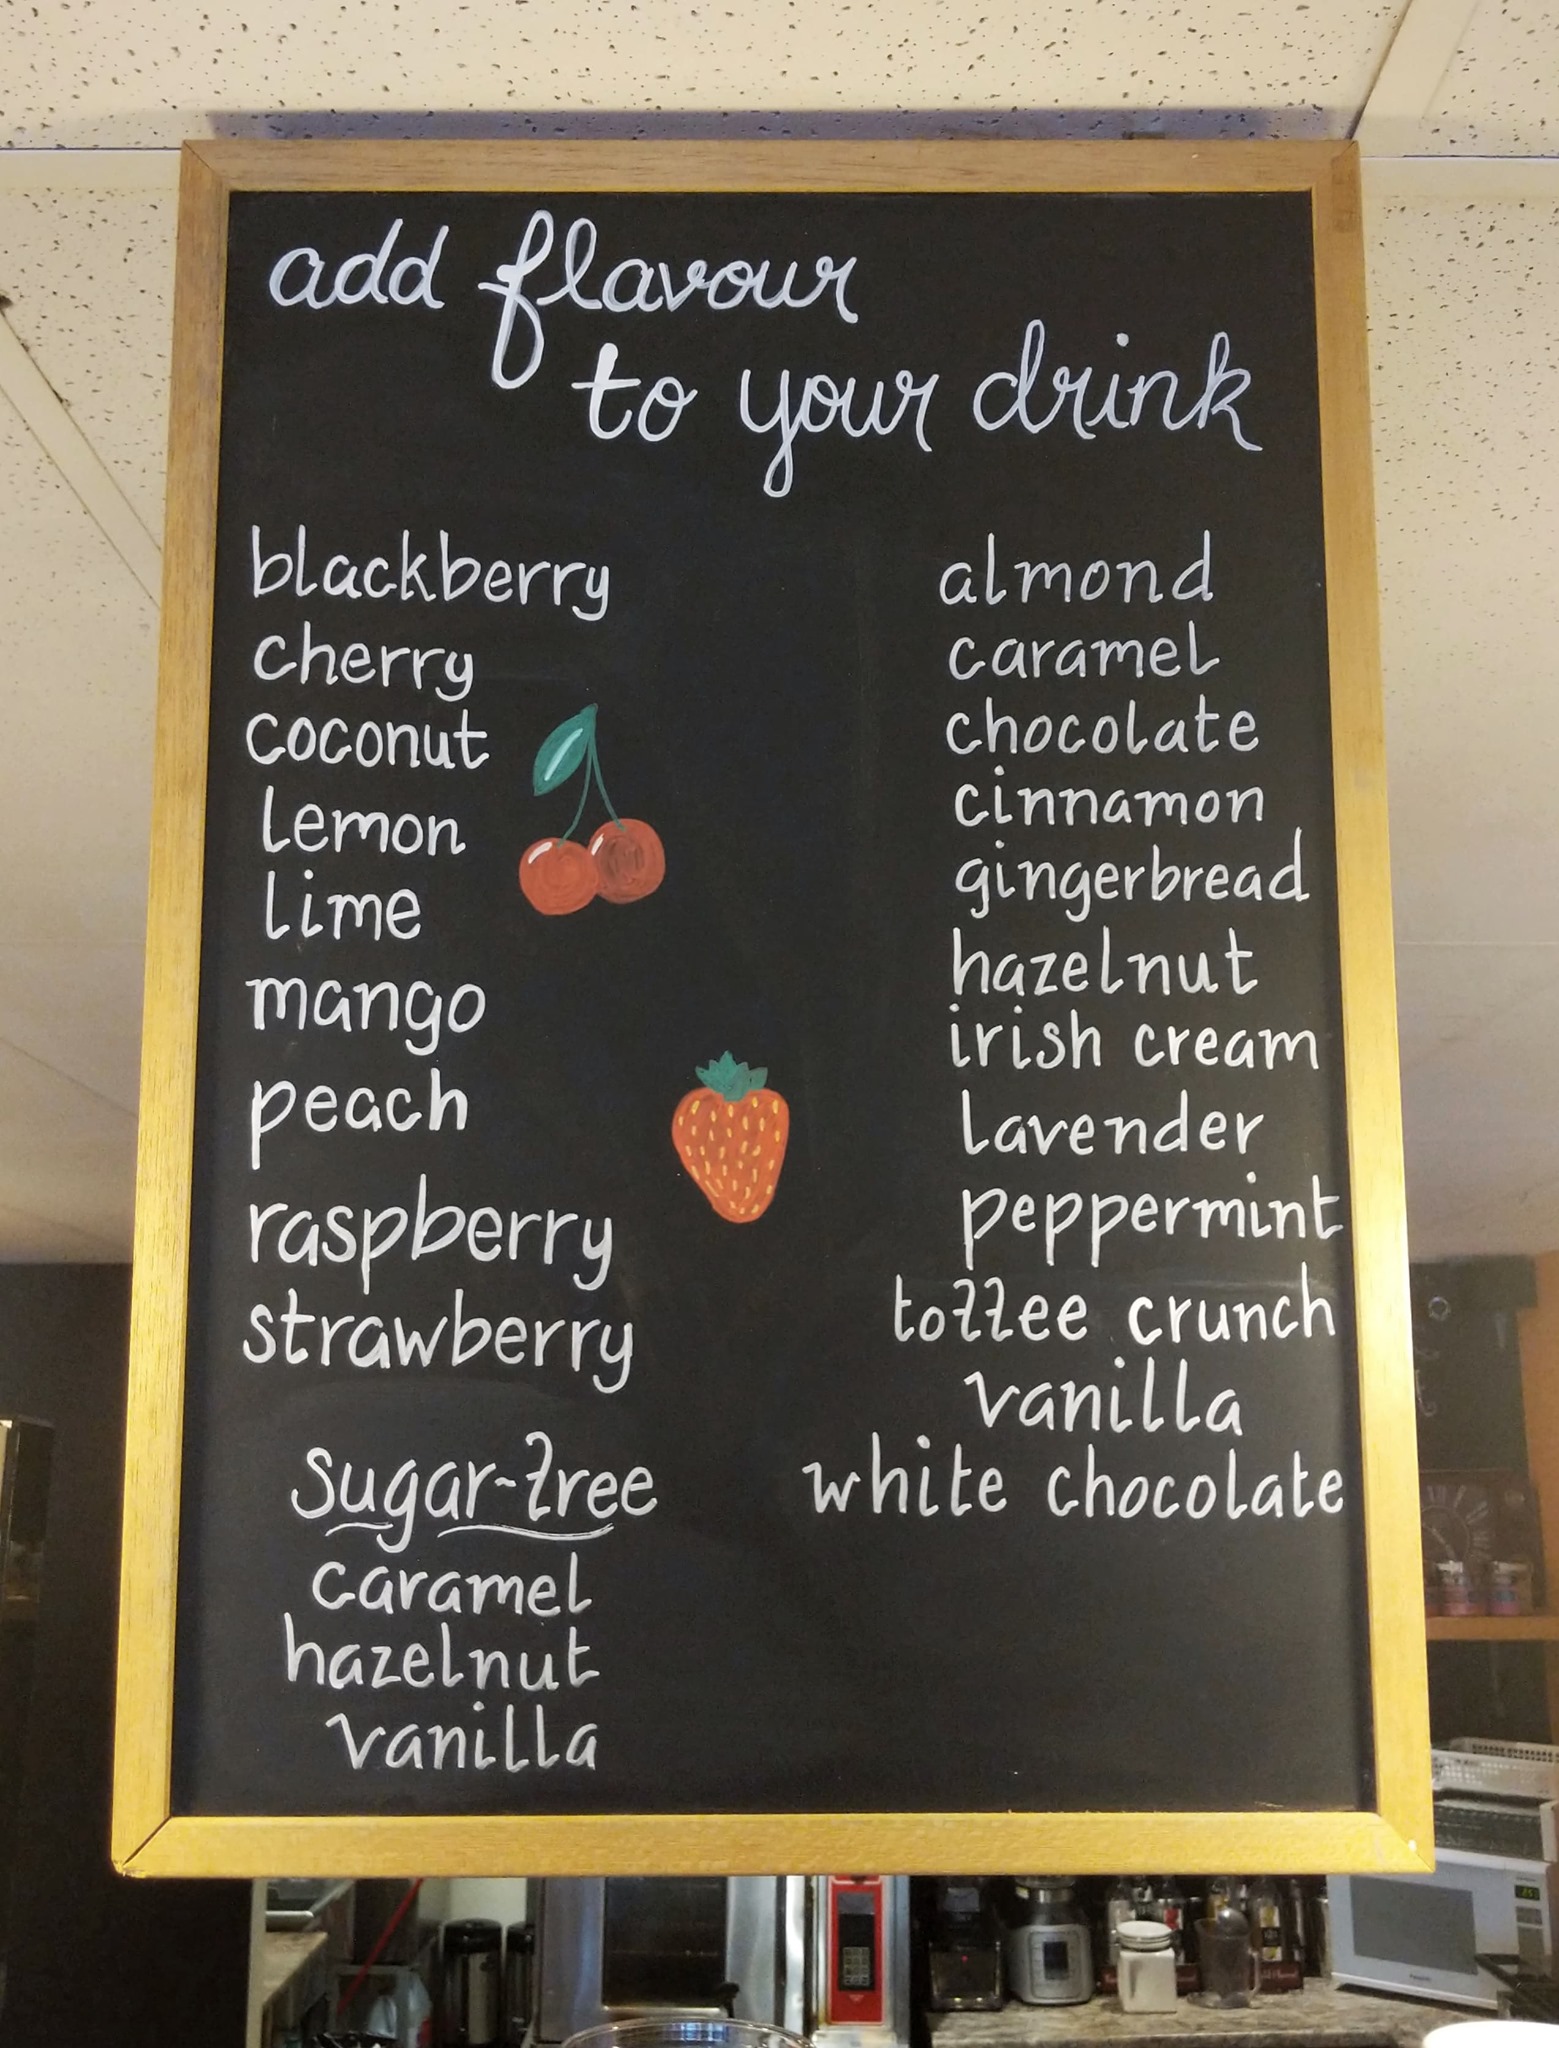 add flavour
to your drink
blackberry
cherry
coconut
lemon
lime
mango
peach
raspberry
strawberry
sugar-free
caramel
hazelnut
vanilla
almond
caramel
chocolate
cinnamon
gingerbread
hazelnut
irish cream
lavender
peppermint
toffee crunch
vanilla
white chocolate